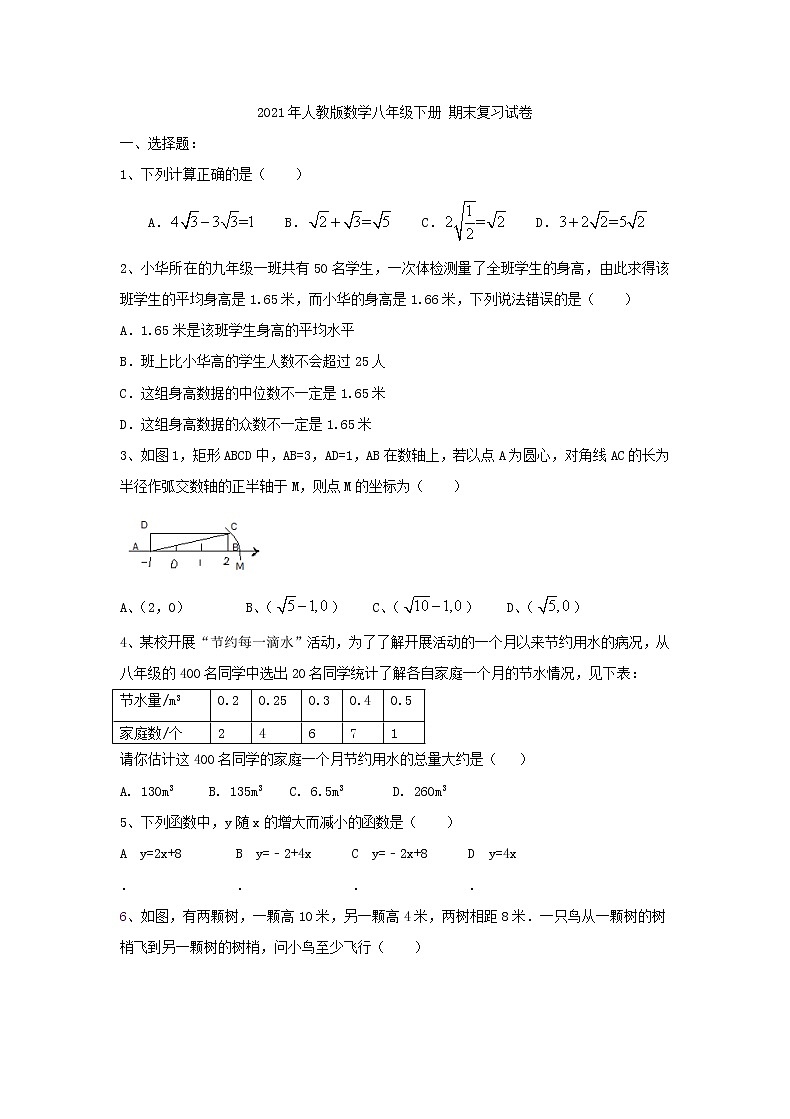 2021年人教版数学八年级下册 期末复习试卷
一、选择题:
1、下列计算正确的是( )
A. 4√3-3√3=1 B. √2+√3=√5 C. 2√(1/2)=√2 D. 3+2√2=5√2
2、小华所在的九年级一班共有50名学生,一次体检测量了全班学生的身高,由此求得该
班学生的平均身高是1.65米,而小华的身高是1.66米,下列说法错误的是( )
A.1.65米是该班学生身高的平均水平
B.班上比小华高的学生人数不会超过25人
C.这组身高数据的中位数不一定是1.65米
D.这组身高数据的众数不一定是1.65米
3、如图1,矩形ABCD中,AB=3,AD=1,AB在数轴上,若以点A为圆心,对角线AC的长为
半径作弧交数轴的正半轴于M,则点M的坐标为( )
D C
A B
-1 0 1 2 M
A、(2,0) B、(√5-1,0) C、(√10-1,0) D、(√5,0)
4、某校开展“节约每一滴水”活动,为了了解开展活动的一个月以来节约用水的病况,从
八年级的400名同学中选出20名同学统计了解各自家庭一个月的节水情况,见下表:
节水量/m³ 0.2 0.25 0.3 0.4 0.5
家庭数/个 2 4 6 7 1
请你估计这400名同学的家庭一个月节约用水的总量大约是( )
A. 130m³ B. 135m³ C. 6.5m³ D. 260m³
5、下列函数中,y随x的增大而减小的函数是( )
A y=2x+8 B y=﹣2+4x C y=﹣2x+8 D y=4x
. . . .
6、如图,有两颗树,一颗高10米,另一颗高4米,两树相距8米.一只鸟从一颗树的树
梢飞到另一颗树的树梢,问小鸟至少飞行( )